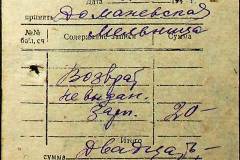 Дата
принять Доманевская
Мельница
№№ Содержание записи Сумма
бал. сч
Возврат
не выдан.
зарп. 20
Итого
сумма Двадцать